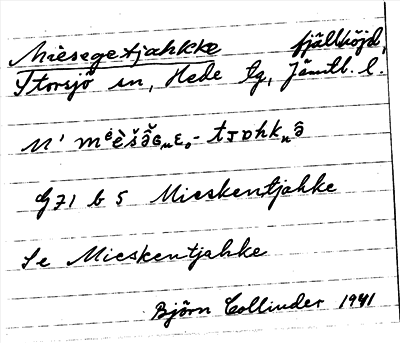 Mièsegetjahkke fjällhöjd,
Storsjö sn, Hede tg, Jämtl. l.
G 71 b 5 Mieskentjahke
Se Mieskentjahke
Björn Collinder 1941